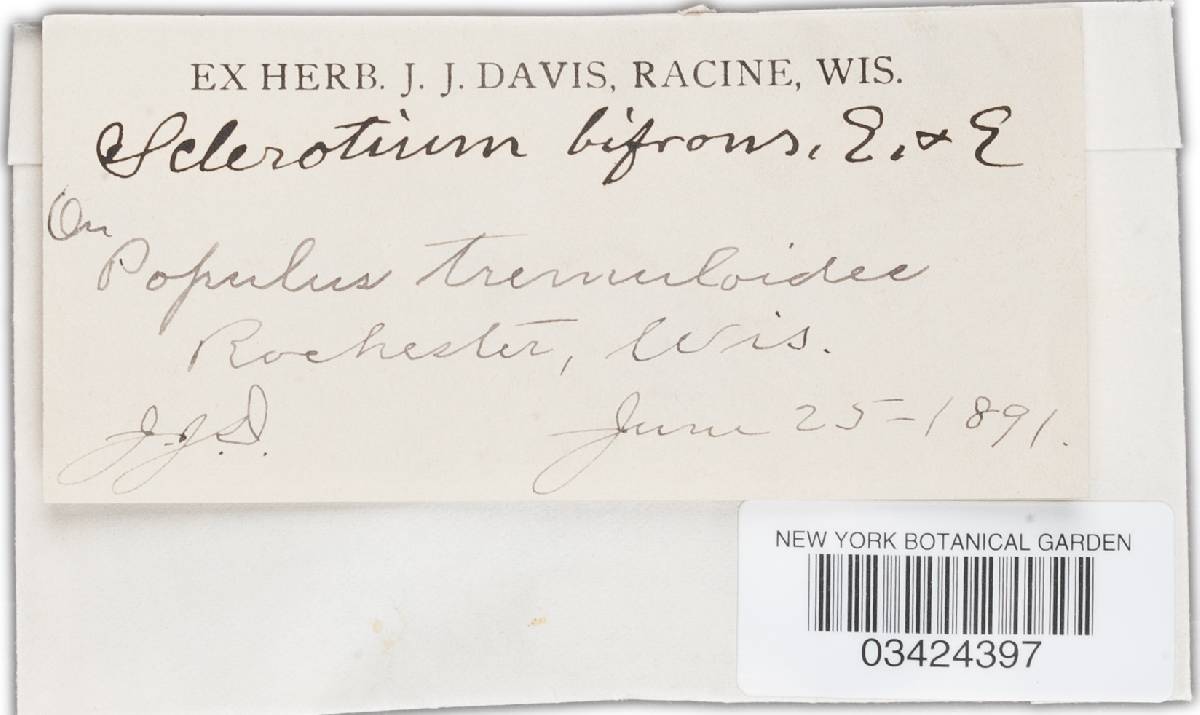 EX HERB. J. J. DAVIS, RACINE, WIS.
Sclerotium bifrons, E. & E
On
Populus tremuloides
Rochester, Wis.
J.J.D. June 25-1891.
NEW YORK BOTANICAL GARDEN
03424397